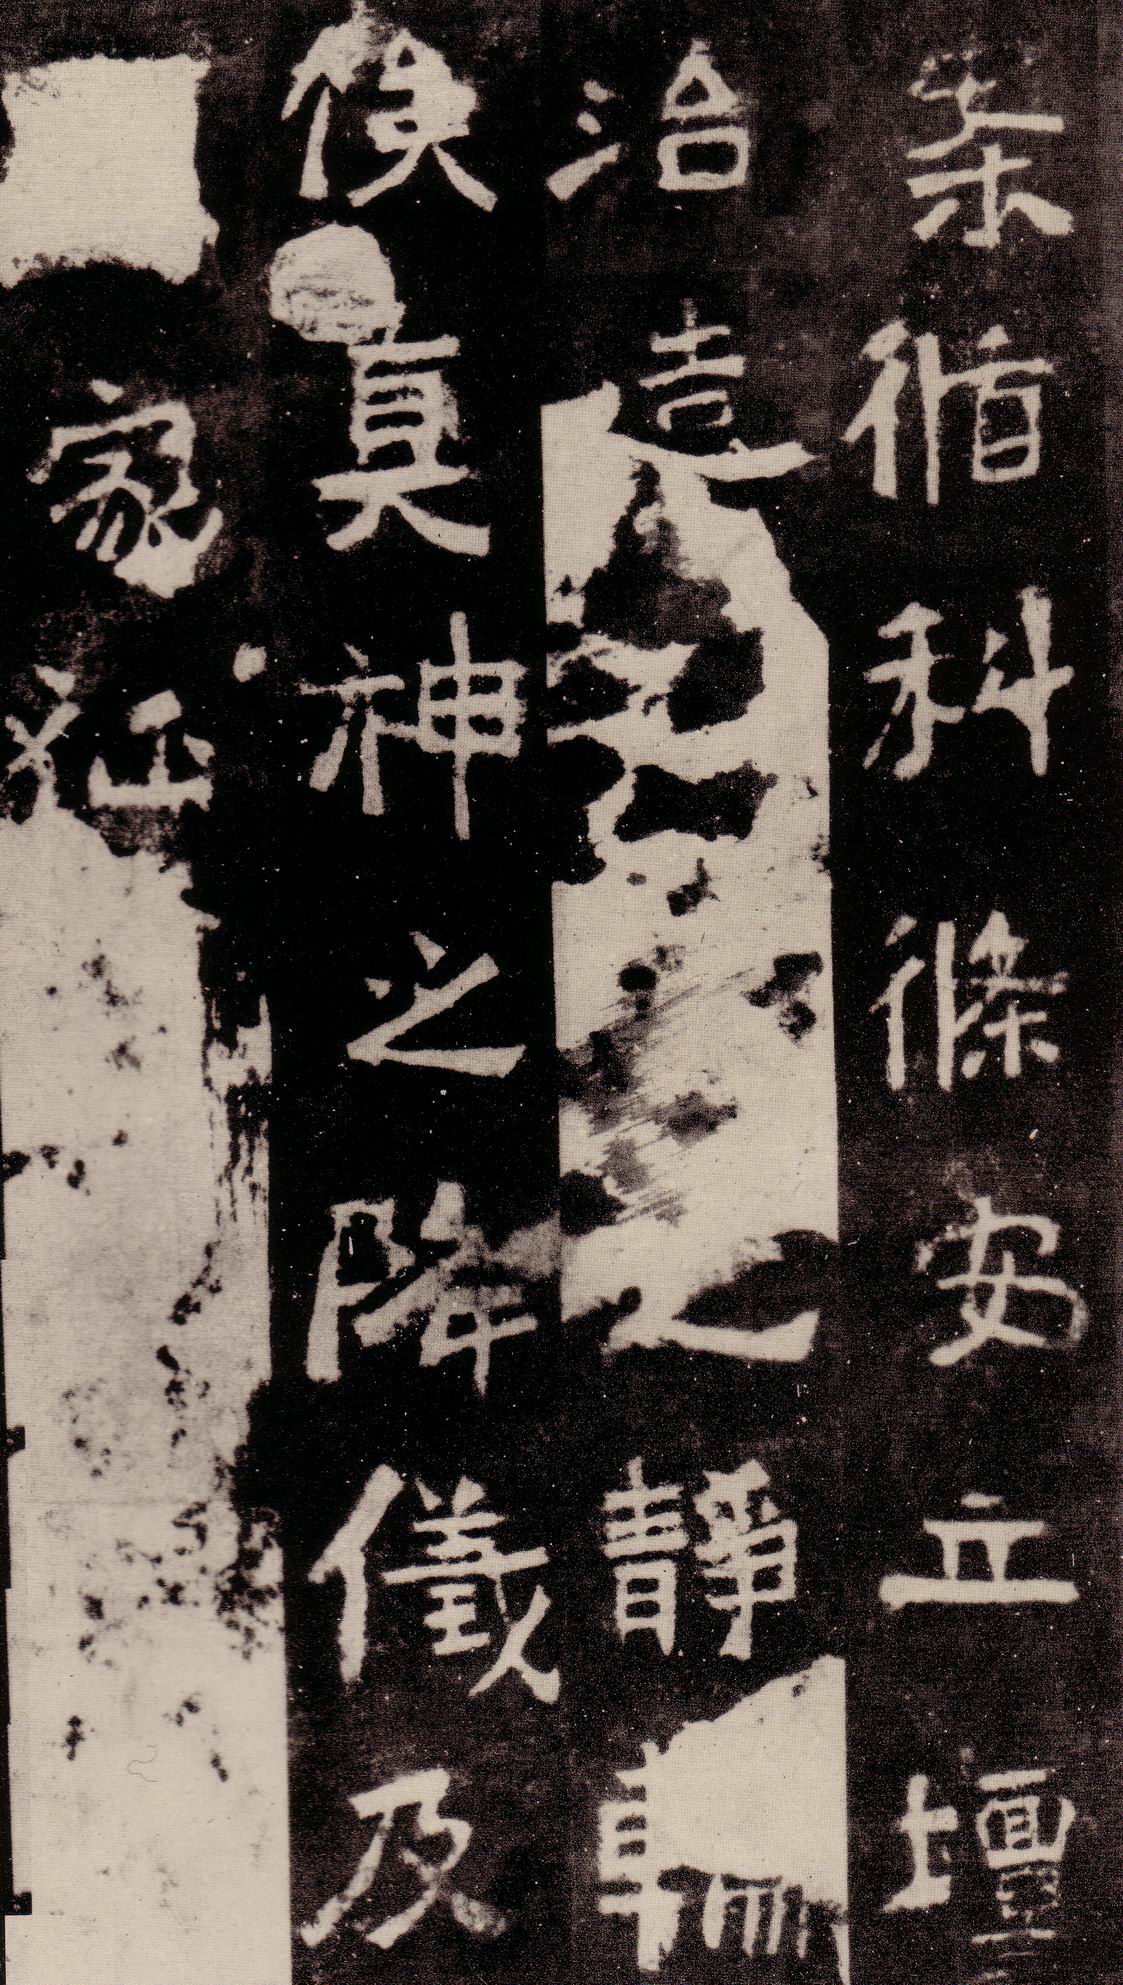 循科條安立壇
治造之靜輪
俟真神之降儀及
家征